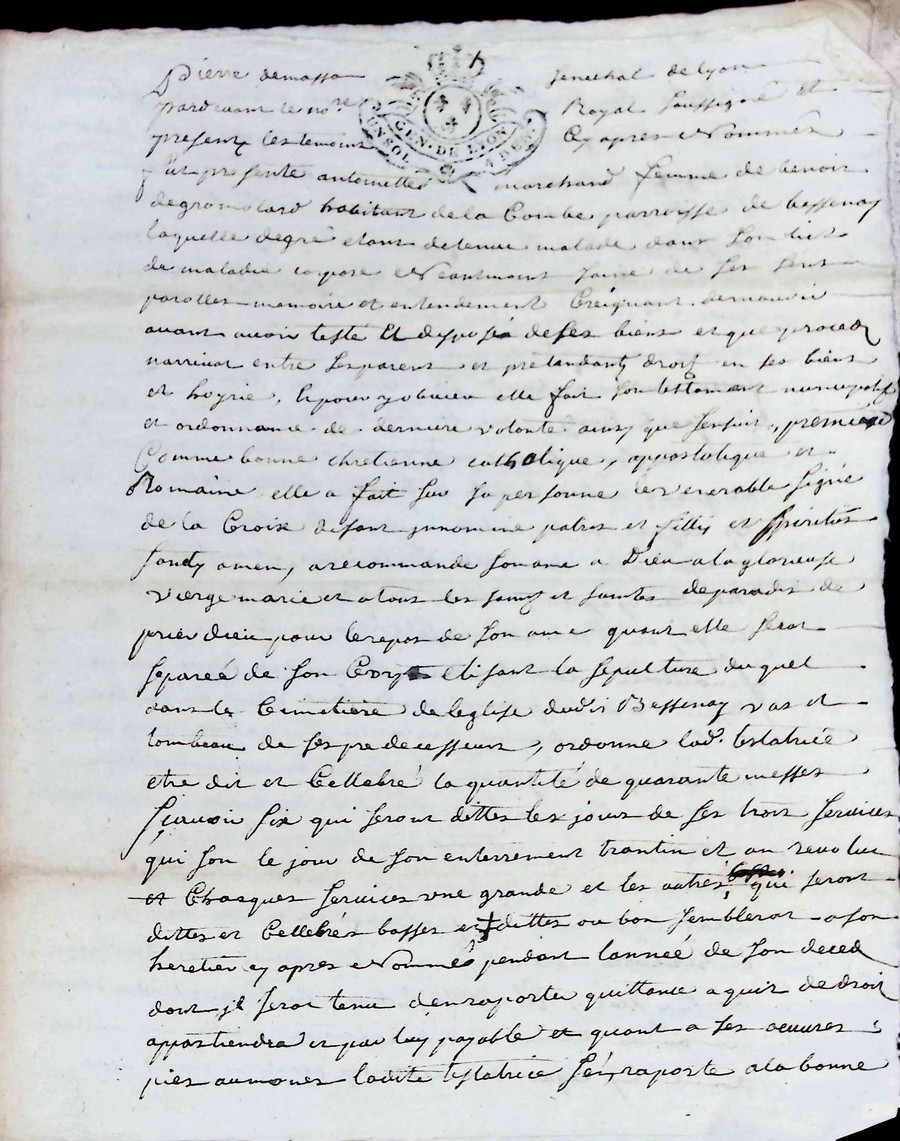 Pierre demasso senechal de lyon
pardevant le no.re Royal soussigné et
present les temoins cy apres Nommés
GEN. DE LYON
fut presente antoinette marchand femme de benoit
degromolard habitant de la Combe parroisse de bessenay
laquelle degré etant detenue malade dans son lict
de maladie corpore Neantmoins saine de ses sens
parolles memoire et entendement Creignant demourir
avant avoir testé Et disposé de ses biens et que proced
narrivat entre ses parent et pretandants droit en ses biens
et hoyrie, a pour y obvier elle fait son testament nuncupatif
et ordonnance de derniere volonté ainsy que sensuit, premiere
Comme bonne chretienne catholique, appostolique et
Romaine elle a fait sur sa personne le venerable signe
de la Croix disant in nomine patris et fillii et spiritus
santy amen, a recommandé son ame a Dieu a la glorieuse
vierge marie et a tous les saints et saintes de paradis de
prier dieu pour le repos de son ame quant elle serat
separeé de son Corps elisant la sepulture duquel
dans le Cimetiere de leglise dudit Bessenay vas et
tombeau de ses predecesseurs, ordonne lad. testatrice
etre dit et Cellebré la quantité de quarante messes
scavoir six qui seront dittes les jours de ses trois services
qui son le jour de son enterrement trantin et an revolu
et Chasques services une grande et les autres qui seront
dittes et Cellebrés basses et dittes ou bon semblerat a son
heretier cy apres Nommé pendant lanneé de son deced
dont il serat tenu den raporter quittance a qui de droit
appartiendra et par luy payable et quant a ses oeuvres
pies aumones ladite testatrice sen raporte a la bonne